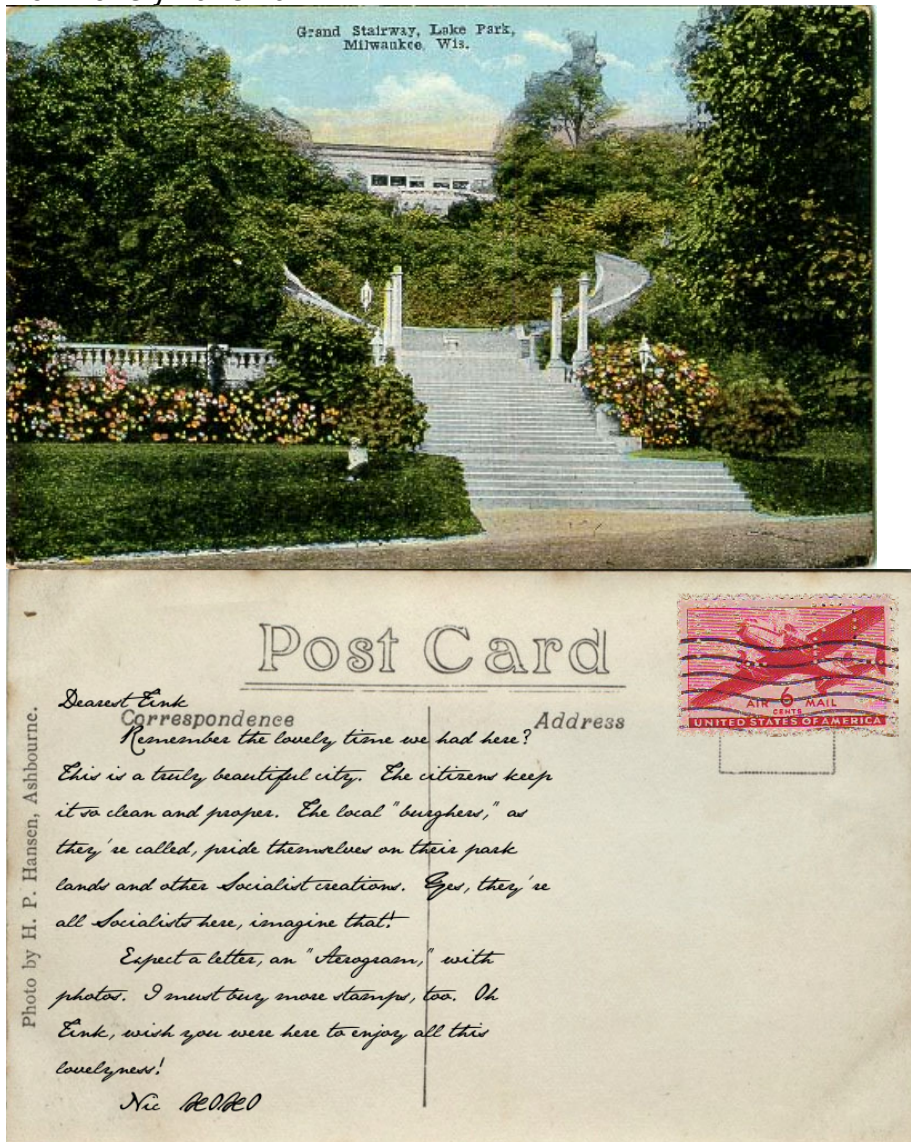 Grand Stairway, Lake Park,
Milwaukee, Wis.
Post Card
Correspondence
Address
AIR 6 MAIL
CENTS
UNITED STATES OF AMERICA
Photo by H. P. Hansen, Ashbourne.
Dearest Tink
Remember the lovely time we had here?
This is a truly beautiful city. The citizens keep
it so clean and proper. The local "burghers," as
they're called, pride themselves on their park
lands and other Socialist creations. Yes, they're
all Socialists here, imagine that!
Expect a letter, an "Aerogram," with
photos. I must buy more stamps, too. Oh
Tink, wish you were here to enjoy all this
lovelyness!
Nic XOXO